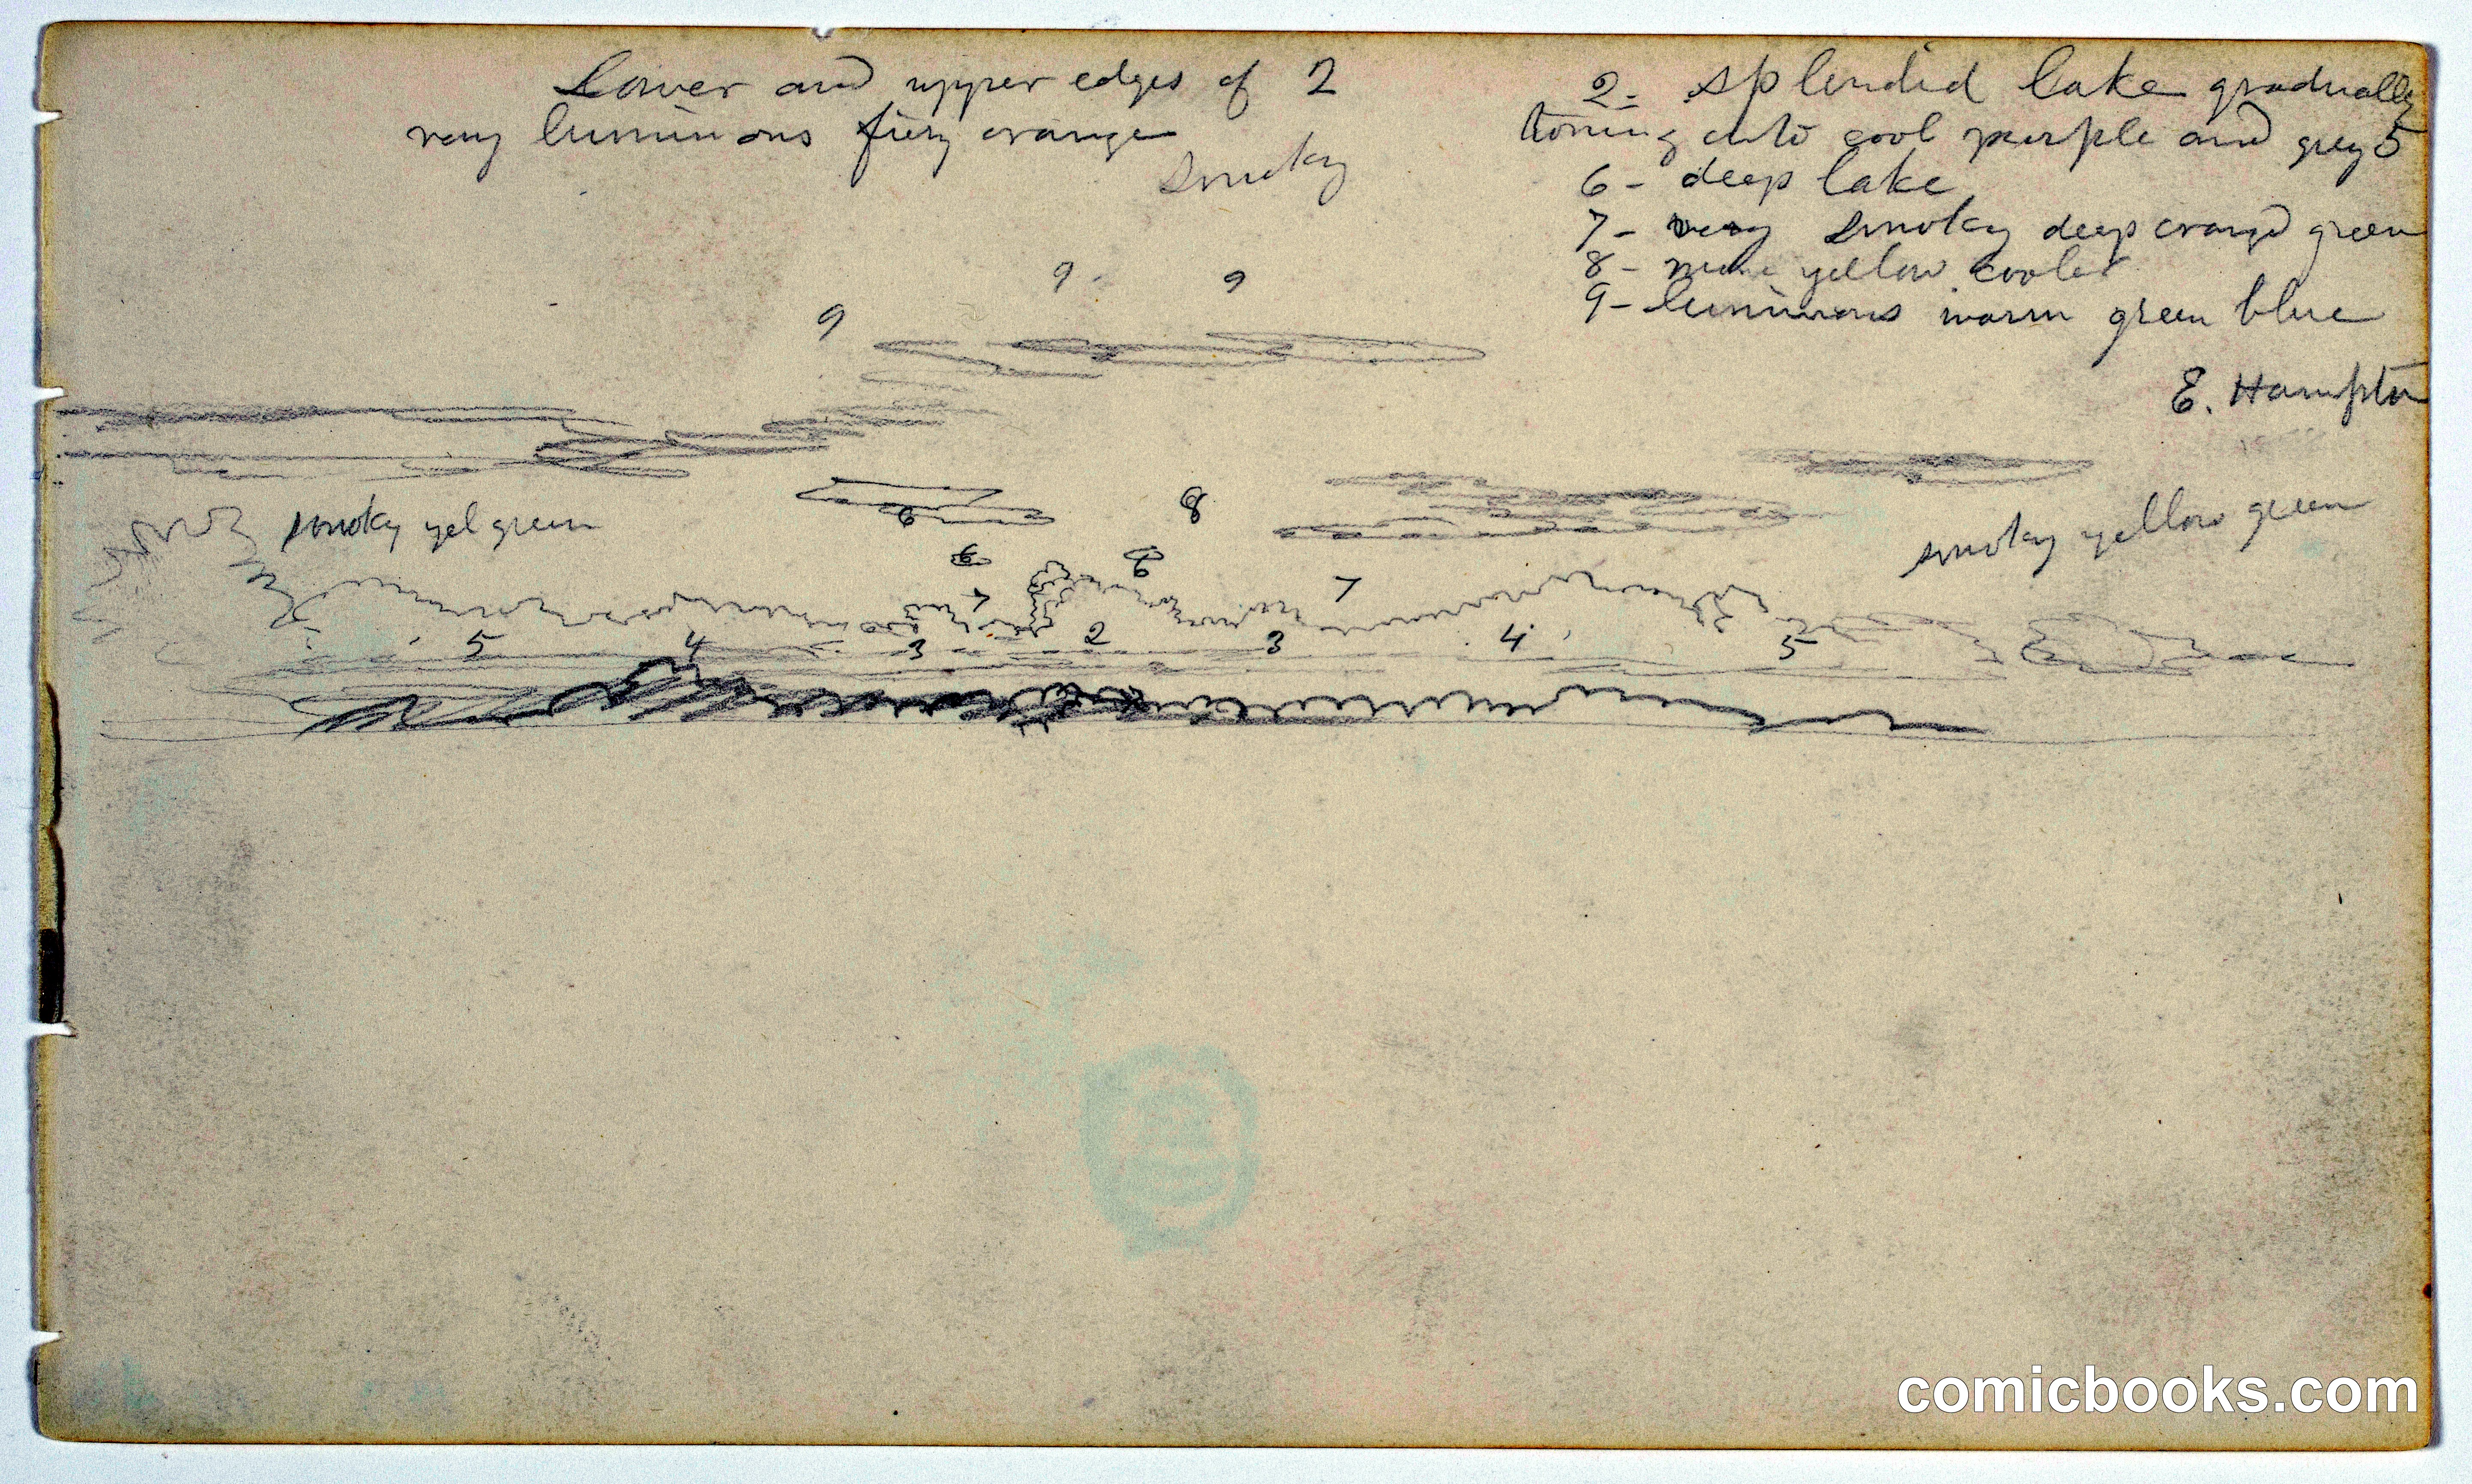 Lower and upper edges of 2
very luminous fiery orange
smoky
2- splendid lake gradually
toning into cool purple and grey 5
6- deep lake
7- very smoky deep orange green
8- more yellow cooler
9- luminous warm green blue
E. Hampton
9 9
9
smoky yel green
6
8
smoky yellow green
6 6
7 7
5 4 3 2 3 4 5
comicbooks.com